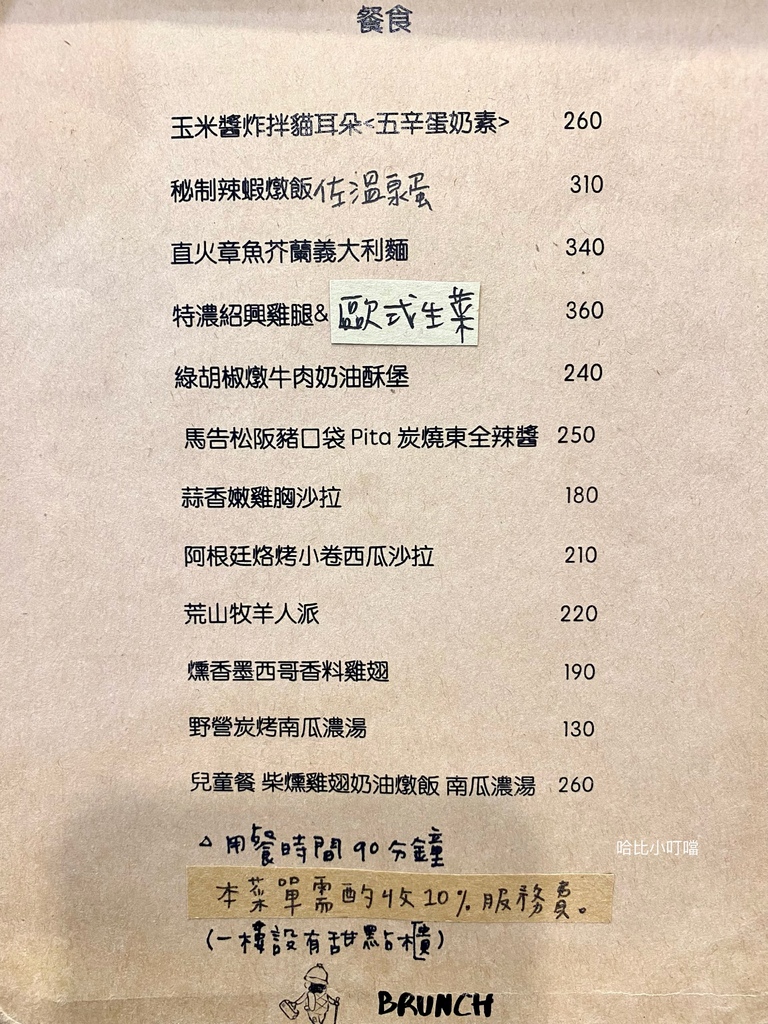 餐食
玉米醬炸拌貓耳朵<五辛蛋奶素> 260
秘制辣蝦燉飯佐溫泉蛋 310
直火章魚芥蘭義大利麵 340
特濃紹興雞腿&歐式生菜 360
綠胡椒燉牛肉奶油酥堡 240
馬告松阪豬口袋 Pita 炭燒東全辣醬 250
蒜香嫩雞胸沙拉 180
阿根廷烙烤小卷西瓜沙拉 210
荒山牧羊人派 220
燻香墨西哥香料雞翅 190
野營炭烤南瓜濃湯 130
兒童餐 柴燻雞翅奶油燉飯 南瓜濃湯 260
△用餐時間90分鐘
哈比小叮噹
本菜單需酌收10%服務費。
(一樓設有甜點櫃)
BRUNCH